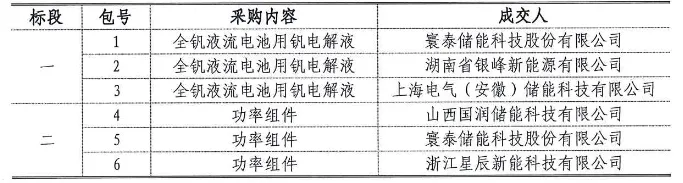 标段 包号 采购内容 成交人
一 1 全钒液流电池用钒电解液 寰泰储能科技股份有限公司
2 全钒液流电池用钒电解液 湖南省银峰新能源有限公司
3 全钒液流电池用钒电解液 上海电气（安徽）储能科技有限公司
二 4 功率组件 山西国润储能科技有限公司
5 功率组件 寰泰储能科技股份有限公司
6 功率组件 浙江星辰新能科技有限公司